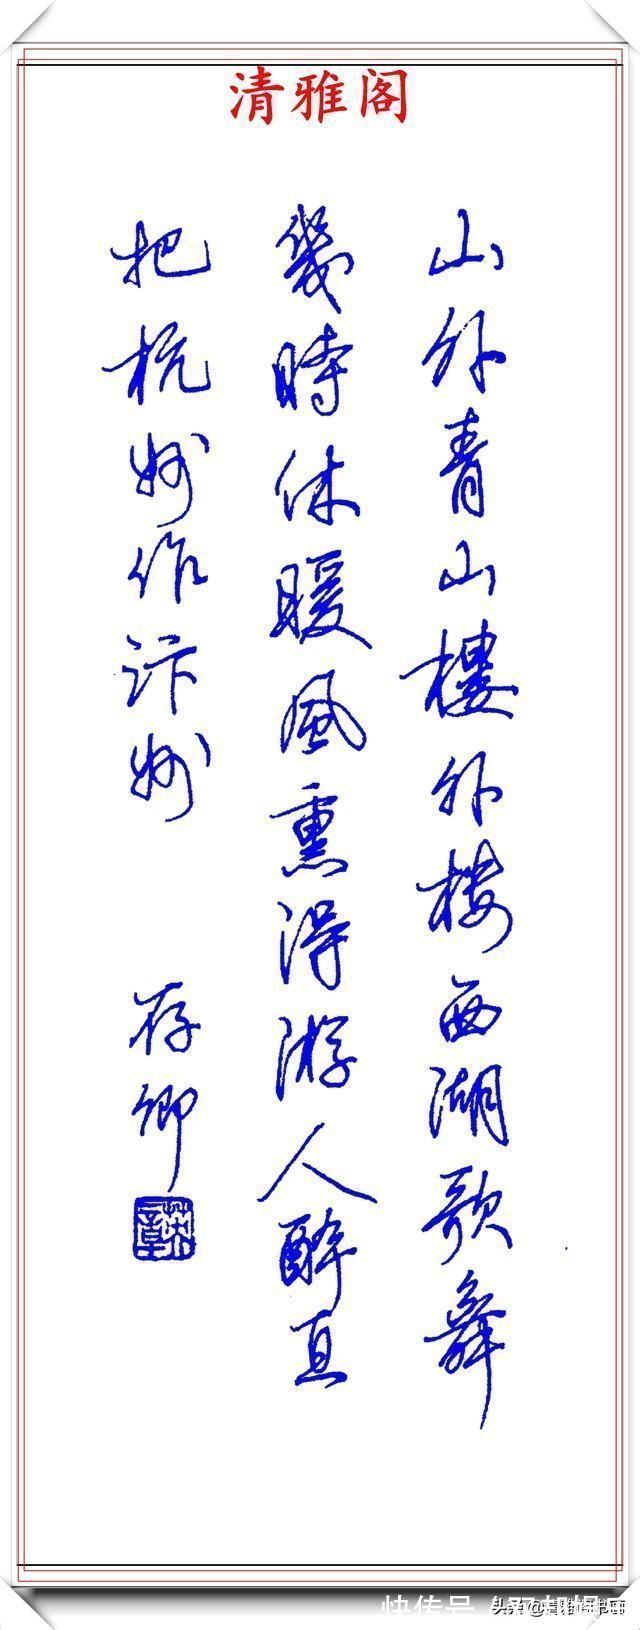 清雅阁
山外青山樓外楼西湖歌舞
幾時休暖風熏得游人醉直
把杭州作汴州
存卿
快传号